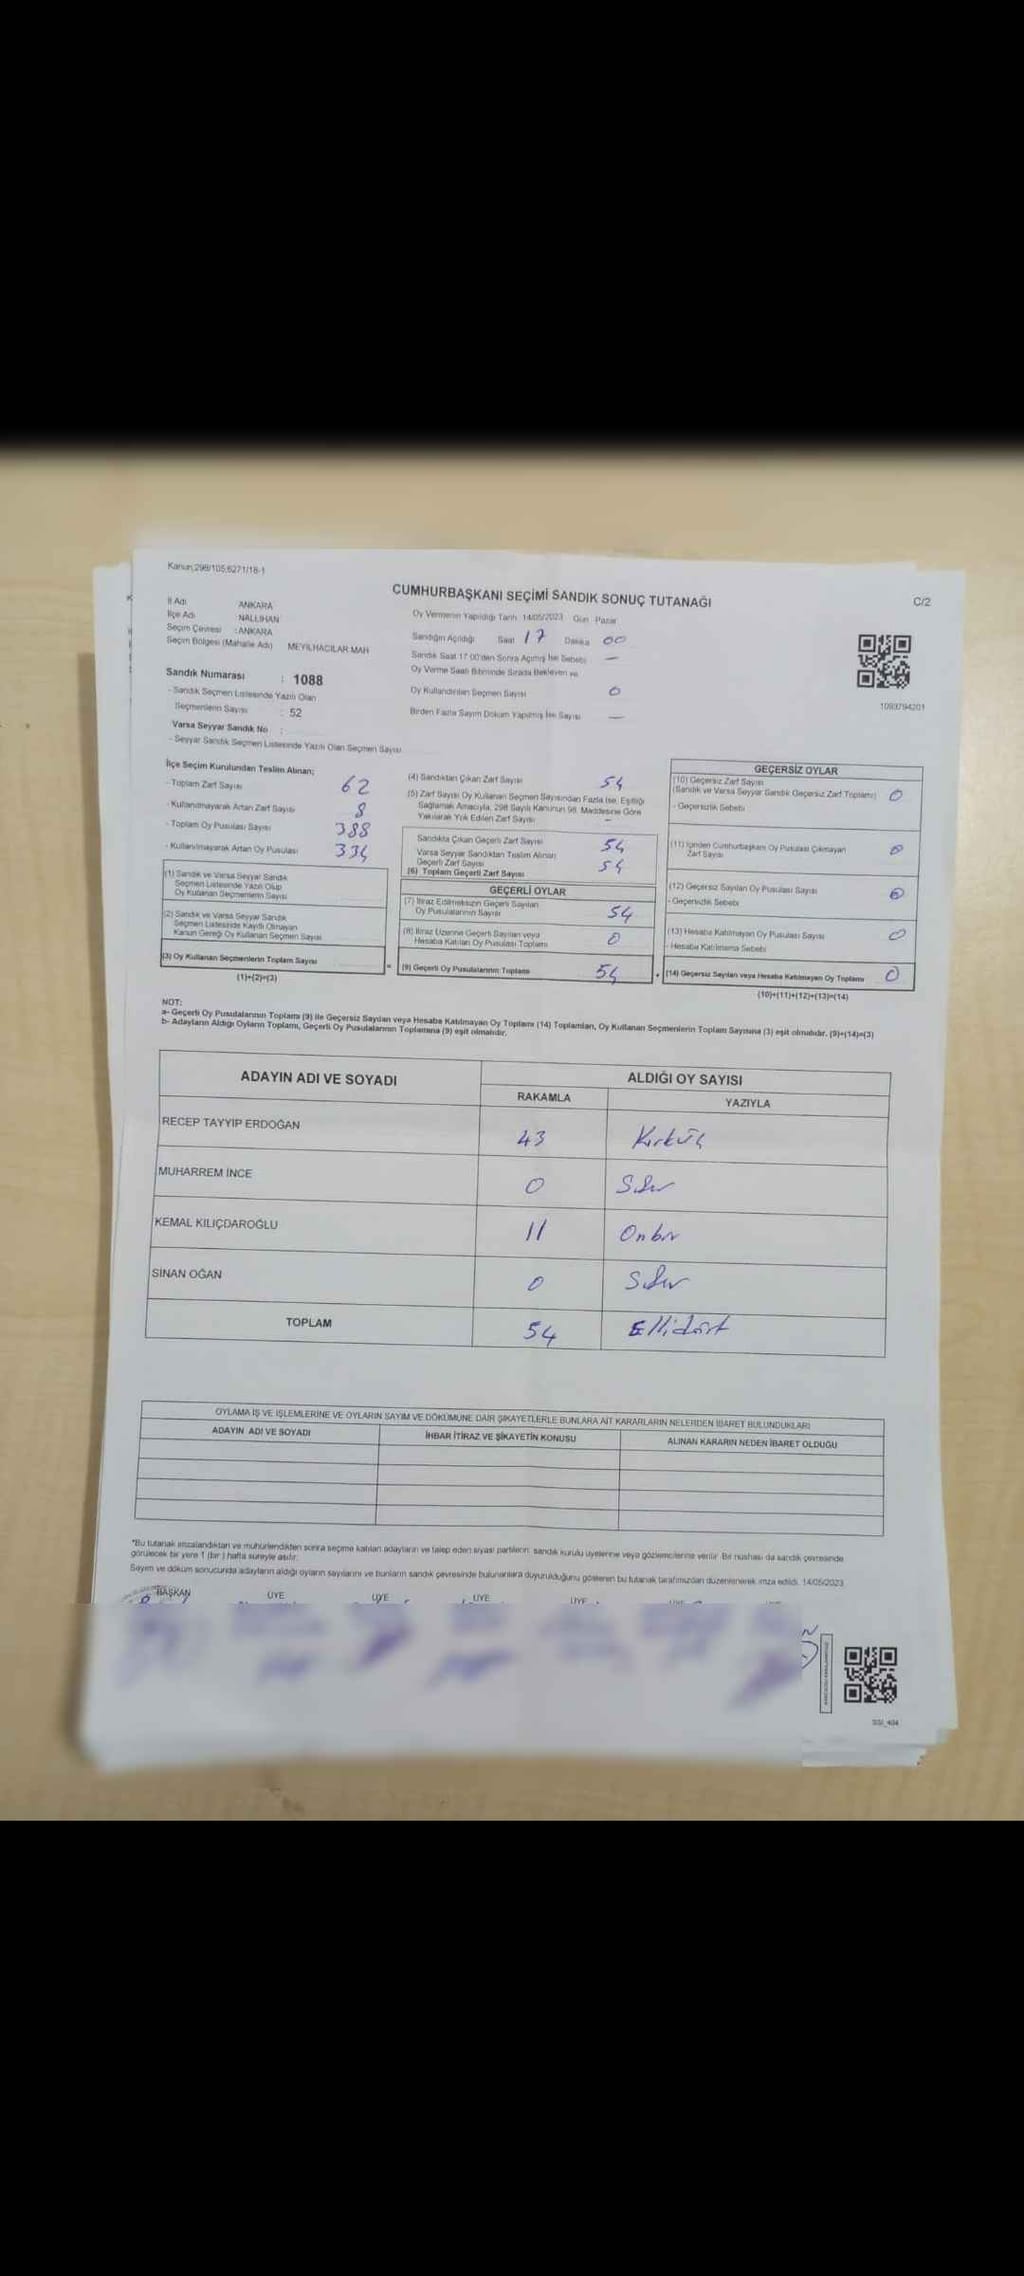 Kanun;298/105;6271/18-1
CUMHURBAŞKANI SEÇİMİ SANDIK SONUÇ TUTANAĞI
C/2
İl Adı ANKARA
İlçe Adı NALLIHAN
Seçim Çevresi : ANKARA
Seçim Bölgesi (Mahalle Adı) MEYİLHACILAR MAH
Sandık Numarası : 1088
- Sandık Seçmen Listesinde Yazılı Olan
Seçmenlerin Sayısı : 52
Varsa Seyyar Sandık No :
- Seyyar Sandık Seçmen Listesinde Yazılı Olan Seçmen Sayısı
Oy Vermenin Yapıldığı Tarih 14/05/2023 Gün Pazar
Sandığın Açıldığı Saat 17 Dakika 00
Sandık Saat 17:00'dan Sonra Açılmış İse Sebebi —
Oy Verme Saati Bitiminde Sırada Bekleyen ve
Oy Kullandırılan Seçmen Sayısı 0
Birden Fazla Sayım Döküm Yapılmış İse Sayısı —
1093794201
İlçe Seçim Kurulundan Teslim Alınan;
- Toplam Zarf Sayısı 62
- Kullanılmayarak Artan Zarf Sayısı 8
- Toplam Oy Pusulası Sayısı 388
- Kullanılmayarak Artan Oy Pusulası 334
(1) Sandık ve Varsa Seyyar Sandık
Seçmen Listesinde Yazılı Olup
Oy Kullanan Seçmenlerin Sayısı
(2) Sandık ve Varsa Seyyar Sandık
Seçmen Listesinde Kayıtlı Olmayan
Kanun Gereği Oy Kullanan Seçmen Sayısı
(3) Oy Kullanan Seçmenlerin Toplam Sayısı
(1)+(2)=(3)
(4) Sandıktan Çıkan Zarf Sayısı 54
(5) Zarf Sayısı Oy Kullanan Seçmen Sayısından Fazla İse, Eşitliği
Sağlamak Amacıyla, 298 Sayılı Kanunun 98. Maddesine Göre
Yakılarak Yok Edilen Zarf Sayısı –
Sandıkta Çıkan Geçerli Zarf Sayısı 54
Varsa Seyyar Sandıktan Teslim Alınan
Geçerli Zarf Sayısı 54
(6) Toplam Geçerli Zarf Sayısı
GEÇERLİ OYLAR
(7) İtiraz Edilmeksizin Geçerli Sayılan
Oy Pusulalarının Sayısı 54
(8) İtiraz Üzerine Geçerli Sayılan veya
Hesaba Katılan Oy Pusulası Toplamı 0
= (9) Geçerli Oy Pusulalarının Toplamı 54
GEÇERSİZ OYLAR
(10) Geçersiz Zarf Sayısı
(Sandık ve Varsa Seyyar Sandık Geçersiz Zarf Toplamı) 0
- Geçersizlik Sebebi
(11) İçinden Cumhurbaşkanı Oy Pusulası Çıkmayan
Zarf Sayısı 0
(12) Geçersiz Sayılan Oy Pusulası Sayısı 0
- Geçersizlik Sebebi
(13) Hesaba Katılmayan Oy Pusulası Sayısı 0
- Hesaba Katılmama Sebebi
+ (14) Geçersiz Sayılan veya Hesaba Katılmayan Oy Toplamı 0
(10)+(11)+(12)+(13)=(14)
NOT:
a- Geçerli Oy Pusulalarının Toplamı (9) ile Geçersiz Sayılan veya Hesaba Katılmayan Oy Toplamı (14) Toplamları, Oy Kullanan Seçmenlerin Toplam Sayısına (3) eşit olmalıdır. (9)+(14)=(3)
b- Adayların Aldığı Oyların Toplamı, Geçerli Oy Pusulalarının Toplamına (9) eşit olmalıdır.
ADAYIN ADI VE SOYADI
ALDIĞI OY SAYISI
RAKAMLA YAZIYLA
RECEP TAYYİP ERDOĞAN 43 Kırküç
MUHARREM İNCE 0 Sıfır
KEMAL KILIÇDAROĞLU 11 Onbir
SİNAN OĞAN 0 Sıfır
TOPLAM 54 Ellidört
OYLAMA İŞ VE İŞLEMLERİNE VE OYLARIN SAYIM VE DÖKÜMÜNE DAİR ŞİKAYETLERLE BUNLARA AİT KARARLARIN NELERDEN İBARET BULUNDUKLARI
ADAYIN ADI VE SOYADI İHBAR İTİRAZ VE ŞİKAYETİN KONUSU ALINAN KARARIN NEDEN İBARET OLDUĞU
*Bu tutanak imzalandıktan ve mühürlendikten sonra seçime katılan adayların ve talep eden siyasi partilerin sandık kurulu üyelerine veya gözlemcilerine verilir. Bir nüshası da sandık çevresinde
görülecek bir yere 1 (bir) hafta süreyle asılır.
Sayım ve döküm sonucunda adayların aldığı oyların sayılarını ve bunların sandık çevresinde bulunanlara duyurulduğunu gösteren bu tutanak tarafımızdan düzenlenerek imza edildi. 14/05/2023
BAŞKAN ÜYE ÜYE ÜYE ÜYE